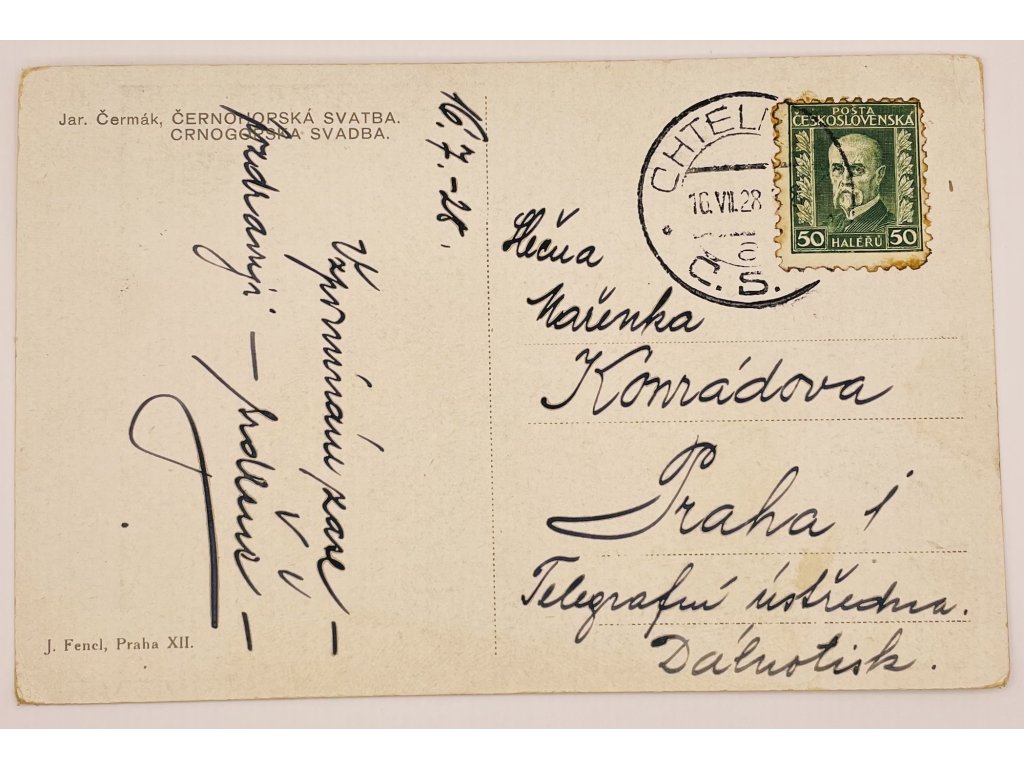 Jar. Čermák, ČERNOHORSKÁ SVATBA.
CRNOGORSKA SVADBA.
16.7.-28.
Vzpomínám zase –
– srdečně –
J. Fencl, Praha XII.
CHTELN
16.VII.28
Č.S.
POŠTA
ČESKOSLOVENSKÁ
50 HALÉŘŮ 50
Slečna
Mařenka
Konrádova
Praha I
Telegrafní ústředna.
Dálnotisk.